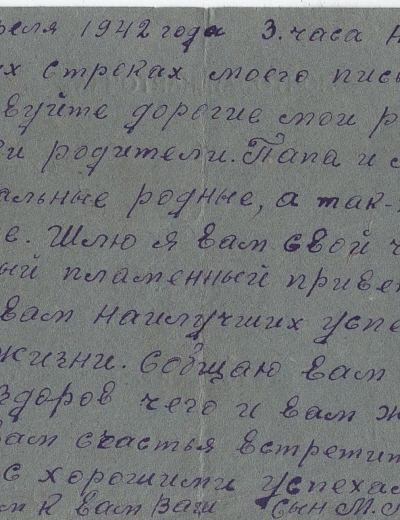 реля 1942 года 3. часа н
х строках моего пись
вуйте дорогие мои р
и родители. Папа и м
альные родные, а так-
е. Шлю я вам свой ч
ый пламенный привет
вам наилучших успе
жизни. Собщаю вам
здоров чего и вам ж
вам счастья встретит
с хорошими успехам
м к вам ваш сын М.